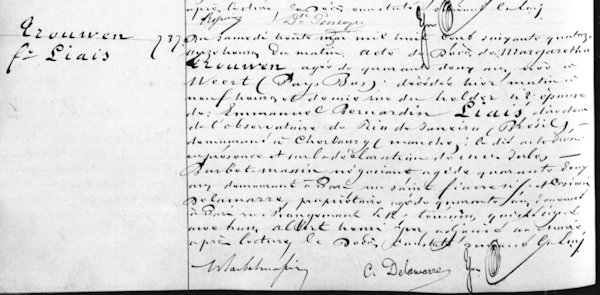 après lecture, le Décès constaté
Trouwen
fe Liais
737
Du samedi trente mai mil huit cent soixante quatorze
onze heures du matin, acte de Décès de Margaretha
Trouwen agée de quarante deux ans, née à
Weert (Pays Bas); décédée hier matin à
neuf heures et demie rue du helder 12 épouse
de: Emmanuel Bernardin Liais, directeur
de l'observatoire de Rio de Janeiro (Brésil),
demeurant à Cherbourg (manche); le dit acte dressé
en présence et sur la déclaration de Jules
Barbet massin négociant agé de quarante deux
ans demeurant à Paris rue saint fiacre et
Delamarre, propriétaire agé de quarante ans, demeurant
à Paris rue qui ont signé
avec nous, albert henri adjoint au maire
après lecture, le Décès constaté
C. Delamarre